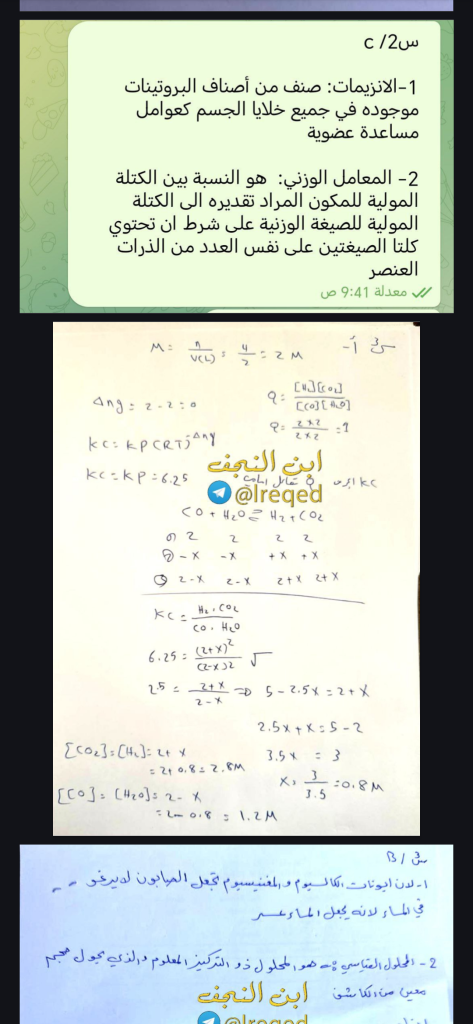 س2/ c
1-الانزيمات: صنف من أصناف البروتينات
موجوده في جميع خلايا الجسم كعوامل
مساعدة عضوية
2- المعامل الوزني: هو النسبة بين الكتلة
المولية للمكون المراد تقديره الى الكتلة
المولية للصيغة الوزنية على شرط ان تحتوي
كلتا الصيغتين على نفس العدد من الذرات
العنصر
معدلة 9:41 ص
س3 أ-
M = n/V(L) = 4/2 = 2 M
Q = [H2][CO2]/[CO][H2O]
Δng = 2-2=0
Q = 2x2/2x2 = 1
Kc = KP(RT)-Δng
ابن النجف
Kc = KP = 6.25
Kc اكبر من Q تفاعل امامي
@lreqed
CO + H2O ⇌ H2 + CO2
2 2 2 2
-x -x +x +x
2-x 2-x 2+x 2+x
Kc = H2.CO2/CO.H2O
6.25 = (2+x)2/(2-x)2 √
2.5 = 2+x/2-x ⇒ 5-2.5x=2+x
2.5x+x=5-2
[CO2]=[H2]=2+x
3.5x = 3
=2+0.8=2.8M
x= 3/3.5 =0.8M
[CO]=[H2O]=2-x
=2-0.8=1.2M
س3/B
1- لان ايونات الكالسيوم و المغنيسيوم تجعل الصابون لا يرغو
في الماء لانه يجعل الماء عسر
2- المحلول القياسي :- هو المحلول ذو التركيز المعلوم والذي يحول حجم
معين من الكاشف
ابن النجف
@lreqed